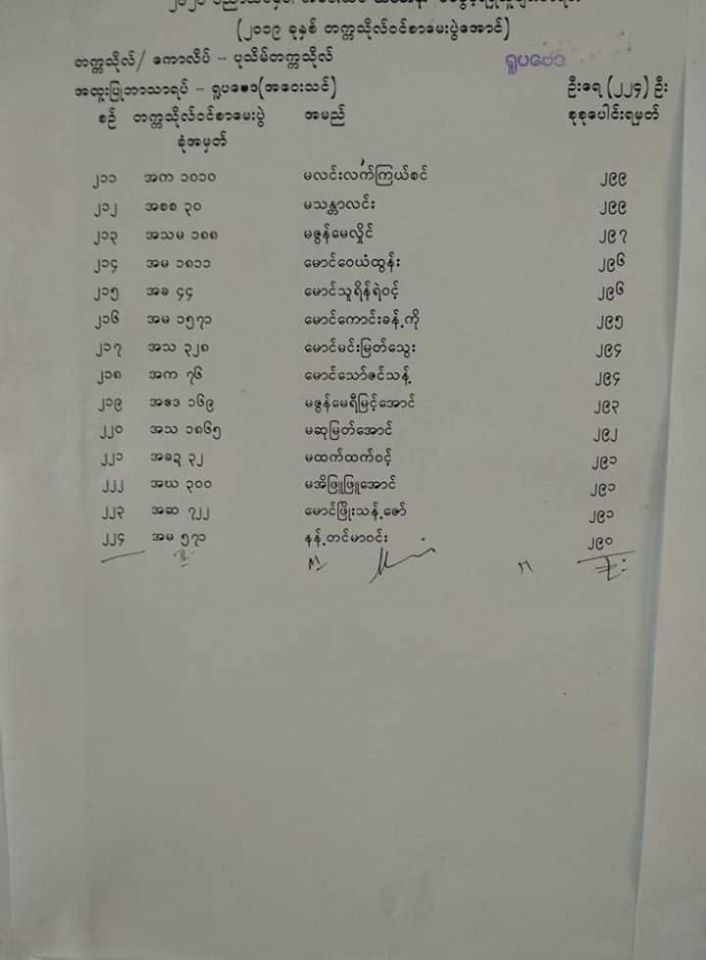 (၂၀၁၉ ခုနှစ် တက္ကသိုလ်ဝင်စာမေးပွဲအောင်)
တက္ကသိုလ်/ ကောလိပ် - ပုသိမ်တက္ကသိုလ် ရူပဗေဒ
အထူးပြုဘာသာရပ် - ရူပဗေဒ(အဝေးသင်) ဦးရေ (၂၂၄) ဦး
စဉ် တက္ကသိုလ်ဝင်စာမေးပွဲ အမည် စုစုပေါင်းရမှတ်
ခုံအမှတ်
၂၁၁ အက ၁၀၁၀ မလင်းလက်ကြယ်စင် ၂၉၉
၂၁၂ အစစ ၃၀ မသန္တာလင်း ၂၉၉
၂၁၃ အသမ ၁၈၈ မဇွန်မေလှိုင် ၂၉၇
၂၁၄ အမ ၁၈၁၁ မောင်ဝေယံထွန်း ၂၉၆
၂၁၅ အခ ၄၄ မောင်သူရိန်ရဲဝင့် ၂၉၆
၂၁၆ အမ ၁၅၇၁ မောင်ကောင်းခန့်ကို ၂၉၅
၂၁၇ အသ ၃၂၈ မောင်မင်းမြတ်သွေး ၂၉၄
၂၁၈ အက ၇၆ မောင်သော်ဇင်သန့် ၂၉၄
၂၁၉ အဇဒ ၁၆၉ မဇွန်မေရီမြင့်အောင် ၂၉၃
၂၂၀ အသ ၁၈၆၅ မဆုမြတ်အောင် ၂၉၂
၂၂၁ အခဍ ၃၂ မထက်ထက်ဝင့် ၂၉၁
၂၂၂ အဃ ၃၀၀ မအိဖြူဖြူအောင် ၂၉၁
၂၂၃ အဆ ၇၂၂ မောင်ဖြိုးသန့်ဇော် ၂၉၁
၂၂၄ အမ ၅၇၁ နန့်တင်မာဝင်း ၂၉၀